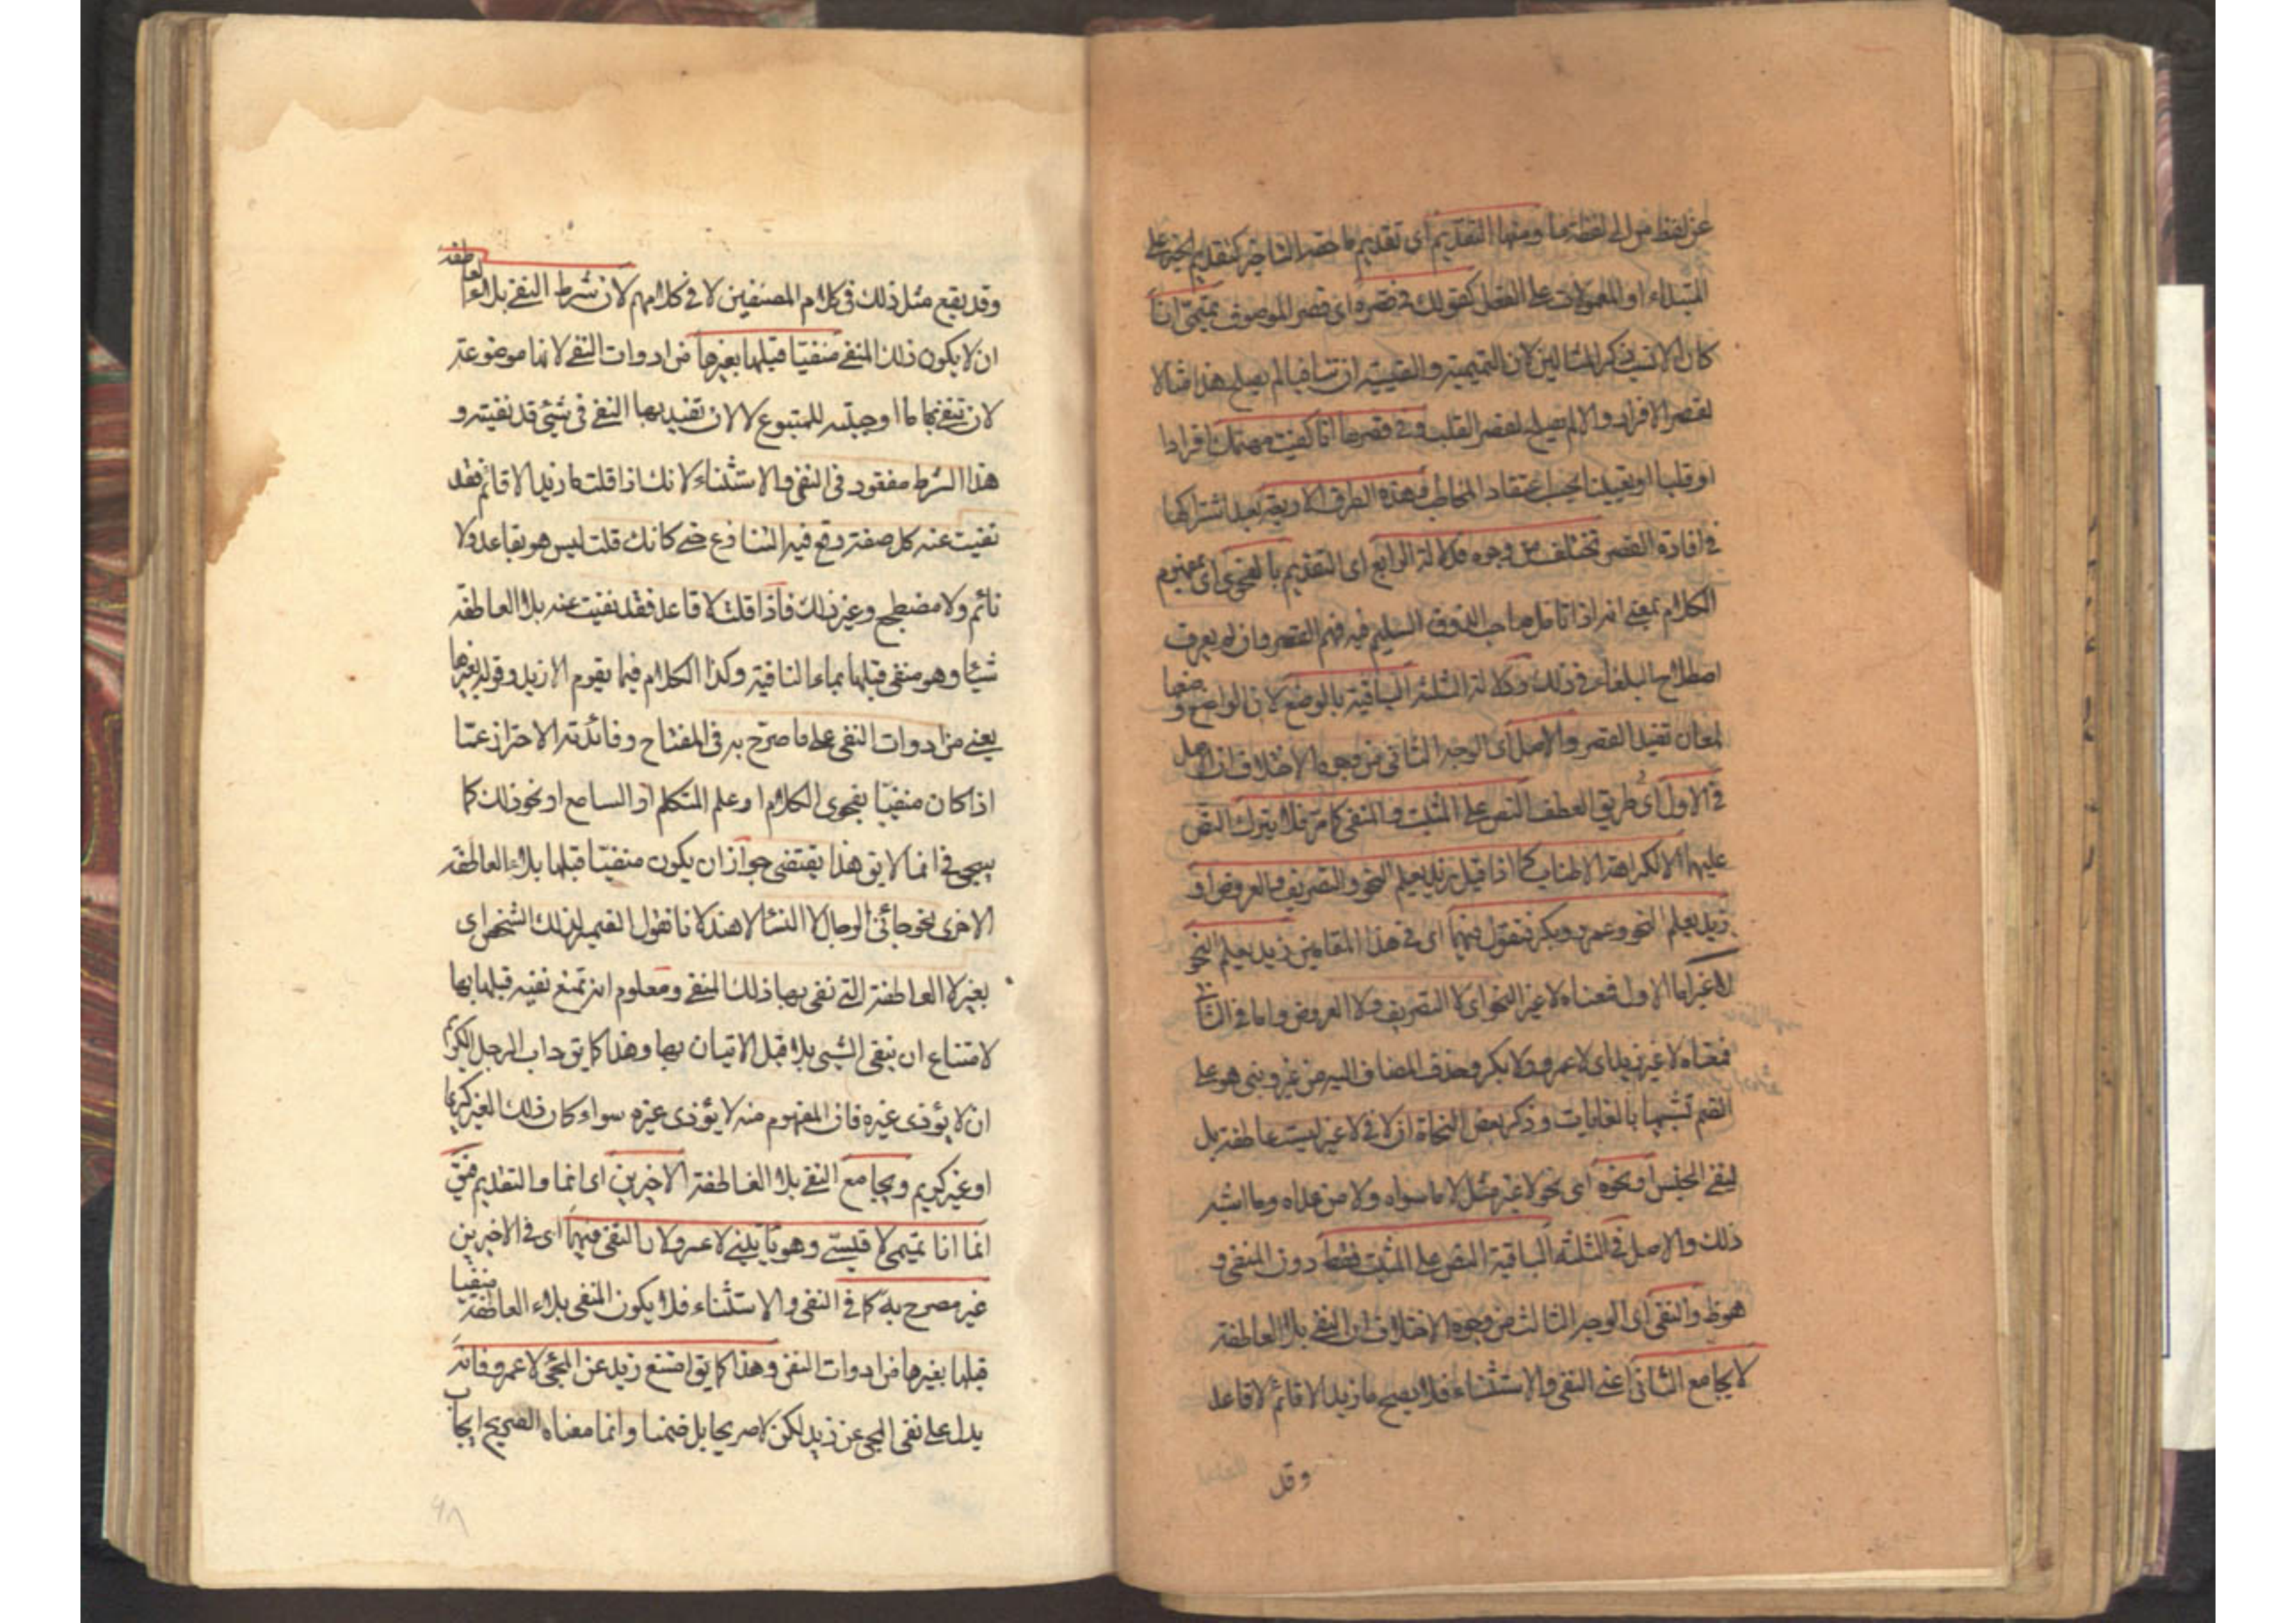 عن لفظ من الى لفظة ما ومنها التقديم اى تقديم ما حقه التاخير كتقديم الخبر على
المبتداء او المعمولات على الفعل كقولك فى قصره اى قصر الموصوف تميمىّ انا
كان الانسب ذكر المثالين لان التميمية والقيسية ان تنافيا لم يصلح هذا مثالا
لقصر الافراد والا لم يصلح لقصر القلب وفى قصرها انا كفيت مهمك افرادا
او قلبا او تعيينا بحسب اعتقاد المخاطب وهذه الطرق الاربعة بعد اشتراكها
فى افادة القصر تختلف من وجوه فدلالة الرابع اى التقديم بالفحوى اى بمفهوم
الكلام بمعنى انه اذا تامل صاحب الذوق السليم فيه فهم القصر وان لم يعرف
اصطلاح البلغاء فى ذلك ودلالة الثلثة الباقية بالوضع لان الواضع وضعها
لمعان تفيد القصر والاصل اى الوجه الثانى من وجوه الاختلاف ان الاصل
فى الاول اى طريق العطف النص على المثبت والمنفى كما مر فلا يترك النص
عليهما الا لكراهة الاطناب كما اذا قيل زيد يعلم النحو والتصريف والعروض او
زيد يعلم النحو وعمرو وبكر فتقول فيهما اى فى هذا المقامين زيد يعلم النحو
لا غير اما الاول فمعناه لا غير النحو اى لا التصريف ولا العروض واما فى الثانى
فمعناه لا غير زيد اى لا عمرو ولا بكر وحذف المضاف اليه من غير وبنى هو على
الضم تشبيها بالغايات وذكر بعض النحاة ان لا فى لا غير ليست عاطفة بل
لنفى الجنس او نحوه اى نحو لا غير مثل لا ما سواه ولا من عداه وما اشبه
ذلك والاصل فى الثلثة الباقية النص على المثبت فقط دون المنفى و
هوظ والنفى اى الوجه الثالث من وجوه الاختلاف ان النفى بلا العاطفة
لا يجامع الثانى اعنى النفى والاستثناء فلا يصح ما زيد الا قائم لا قاعد
وقد
وقد يقع مثل ذلك فى كلام المصنفين لا فى كلامهم لان شرط النفى بلاء العاطفة
ان لا يكون ذلك المنفى منفيّا قبلها بغيرها من ادوات النفى لانها موضوعة
لان تنفى بها ما اوجبته للمتبوع لا لان تفيد بها النفى فى شيئ قد نفيته و
هذا الشرط مفقود فى النفى والاستثناء لانك اذا قلت ما زيد الا قائم فقد
نفيت عنه كل صفة وقع فيه التنازع حتى كانك قلت ليس هو بقاعد ولا
نائم ولا مضطجع وغير ذلك فاذا قلت لا قاعد فقد نفيت عنه بلا العاطفة
شيئا وهو منفى قبلها بماء النافية وكذا الكلام فيما يقوم الا زيد وقوله بغيرها
يعنى من ادوات النفى على ما صرّح به فى المفتاح وفائدته الاحتراز عمّا
اذا كان منفيّا بفحوى الكلام او علم المتكلم او السامع او نحو ذلك كما
سيجئ فى انما لا يق هذا يقتضى جواز ان يكون منفيّا قبلها بلاء العاطفة
الاخرى نحو جائنى الرجال لا النساء لا هند لانا نقول الضمير لذلك الشخص اى
بغير لا العاطفة التى نفى بها ذلك المنفى ومعلوم انه يمتنع نفيه قبلها بها
لامتناع ان ينفى الشيئ بلا قبل الاتيان بها وهذا كما يق داب الرجل الكريم
ان لا يؤذى غيره فان المفهوم منه لا يؤذى غيره سواء كان ذلك الغير كريما
او غير كريم ويجامع النفى بلا العاطفة الاخيرين اى انما والتقديم فيق
انما انا تميمى لا قيسى وهو ياتينى لا عمرو لان النفى فيهما اى فى الاخيرين
غير مصرح به كما فى النفى والاستثناء فلا يكون المنفى بلاء العاطفة منفيا
قبلها بغيرها من ادوات النفى وهذا كما يق امتنع زيد عن المجئ لا عمرو فانه
يدل على نفى المجئ عن زيد لكن لا صريحا بل ضمنا وانما معناه الصريح ايجاب